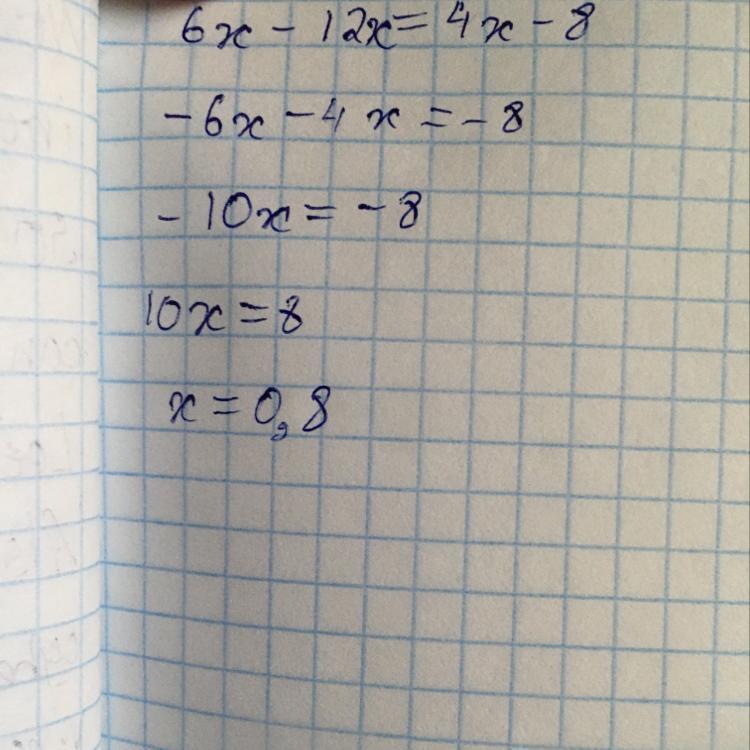 6x - 12x = 4x - 8
-6x - 4x = -8
-10x = -8
10x = 8
x = 0,8